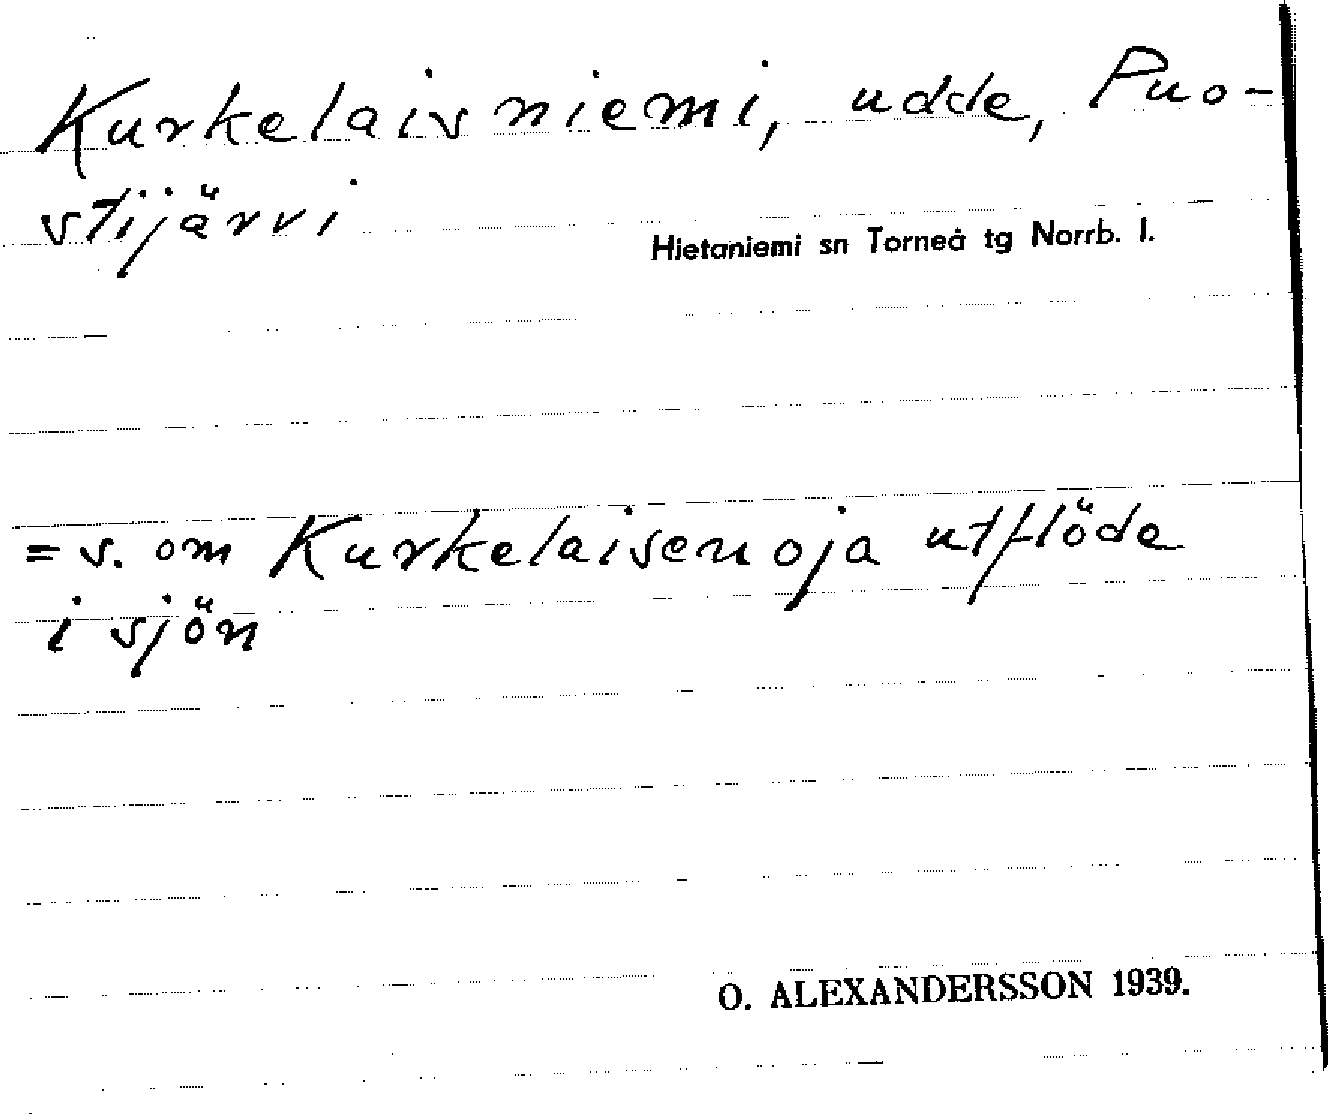 Kurkelaisniemi, udde, Puo-
stijärvi
Hietaniemi sn Torneå tg Norrb. l.
= s. om Kurkelaisenoja utflöde
i sjön
O. ALEXANDERSSON 1939.